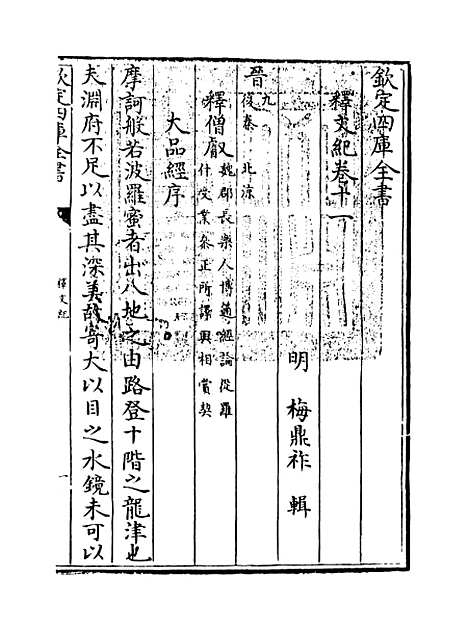 欽定四庫全書
釋文紀卷十一
明　梅鼎祚　輯
晉九
後秦　北涼
釋僧叡
魏郡長樂人博通經論從羅
什受業泰正所譯興相賞契
大品經序
摩訶般若波羅蜜者出八地之由路登十階之龍津也
夫淵府不足以盡其深美故寄大以目之水鏡未可以
欽定四庫全書
釋文紀
一